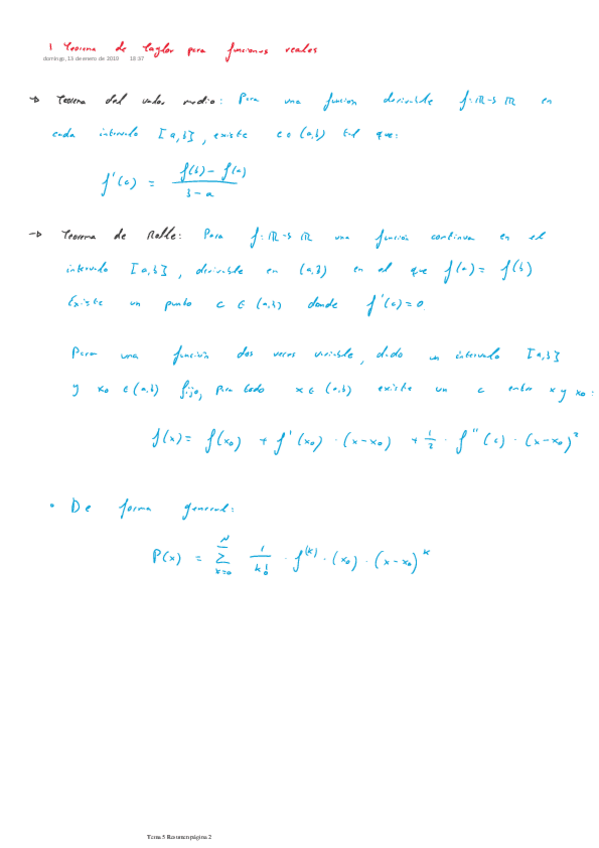 1 Teorema de Taylor para funciones reales
domingo, 13 de enero de 2019 18:37
→ Teorema del valor medio: Para una funcion derivable f: ℝ → ℝ en
cada intervalo [a,b], existe c ∈ (a,b) tal que:
f'(c) = (f(b) - f(a)) / (b - a)
→ Teorema de Rolle: Para f: ℝ → ℝ una función continua en el
intervalo [a,b], derivable en (a,b) en el que f(a) = f(b)
Existe un punto c ∈ (a,b) donde f'(c)=0
Para una función dos veces , dado un intervalo [a,b]
y x₀ ∈ (a,b) fijo, para todo x ∈ (a,b) existe un c entre x y x₀:
f(x) = f(x₀) + f'(x₀) · (x-x₀) + 1/2 · f''(c) · (x-x₀)²
• De forma general:
P(x) = Σ_{k=0}^{N} 1/k! · f^(k) · (x₀) · (x-x₀)^k
Tema 5 Resumen página 2